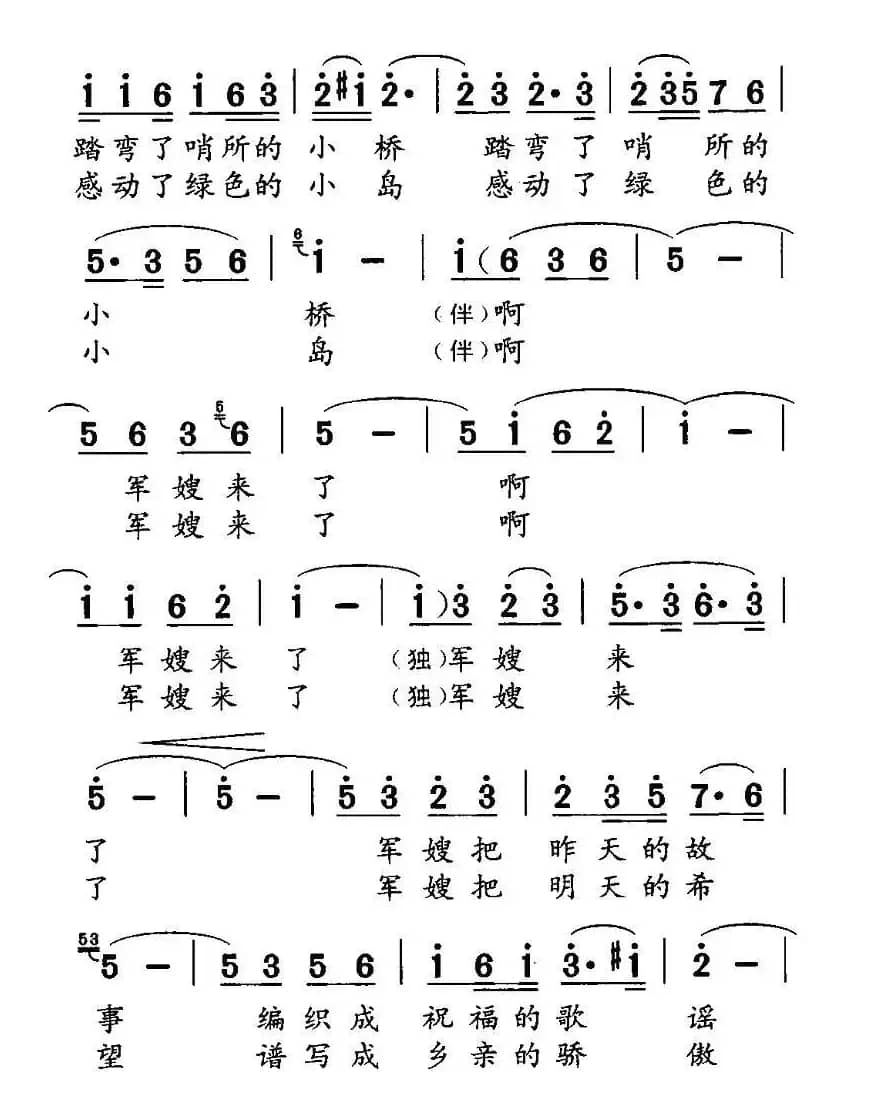 1 1 6 1 6 3 | 2 #1 2· | 2 3 2· 3 | 2 3 5 7 6
踏弯了哨所的小桥 踏弯了哨所的
感动了绿色的小岛 感动了绿色的
5· 3 5 6 | 6 1 - | 1 ( 6 3 6 | 5 - |
小 桥 (伴)啊
小 岛 (伴)啊
5 6 3 5 6 | 5 - | 5 1 6 2 | 1 - |
军嫂来了 啊
军嫂来了 啊
1 1 6 2 | 1 - | 1 ) 3 2 3 | 5· 3 6· 3 |
军嫂来了 (独)军嫂来
军嫂来了 (独)军嫂来
5 - | 5 - | 5 3 2 3 | 2 3 5 7· 6 |
了 军嫂把昨天的故
了 军嫂把明天的希
53 5 - | 5 3 5 6 | 1 6 1 3· #1 | 2 - |
事 编织成祝福的歌谣
望 谱写成乡亲的骄傲